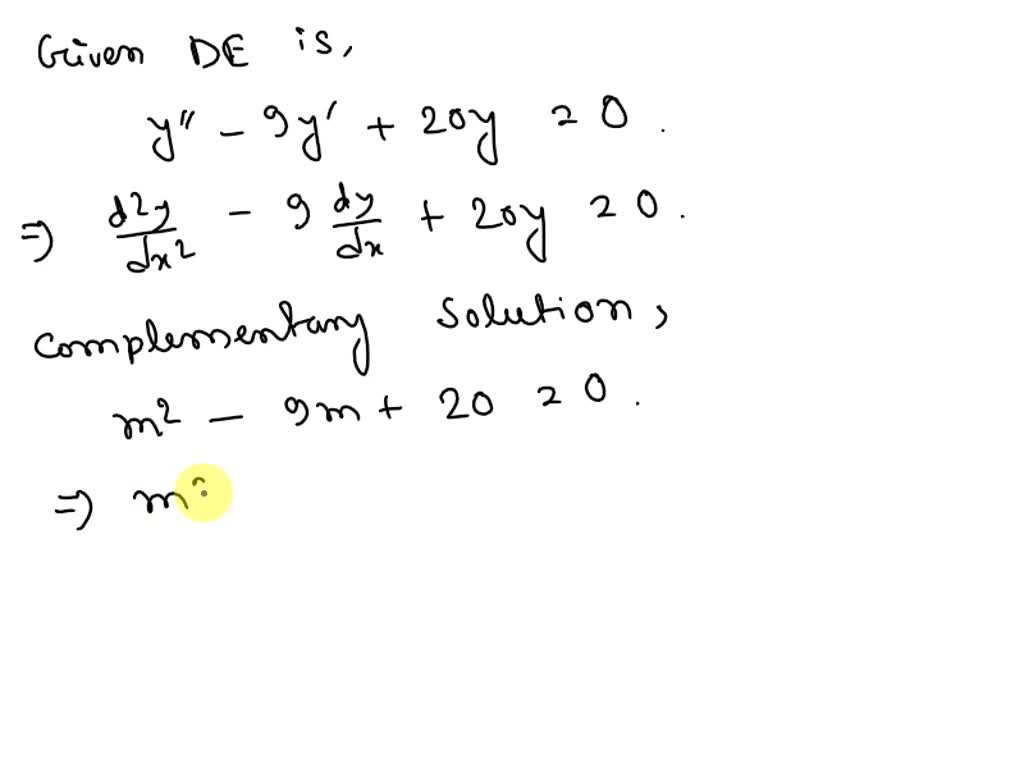 Given DE is,
y'' - 9y' + 20y = 0.
=> d²y/dx² - 9 dy/dx + 20y = 0.
Complementary solution,
m² - 9m + 20 = 0.
=> m²